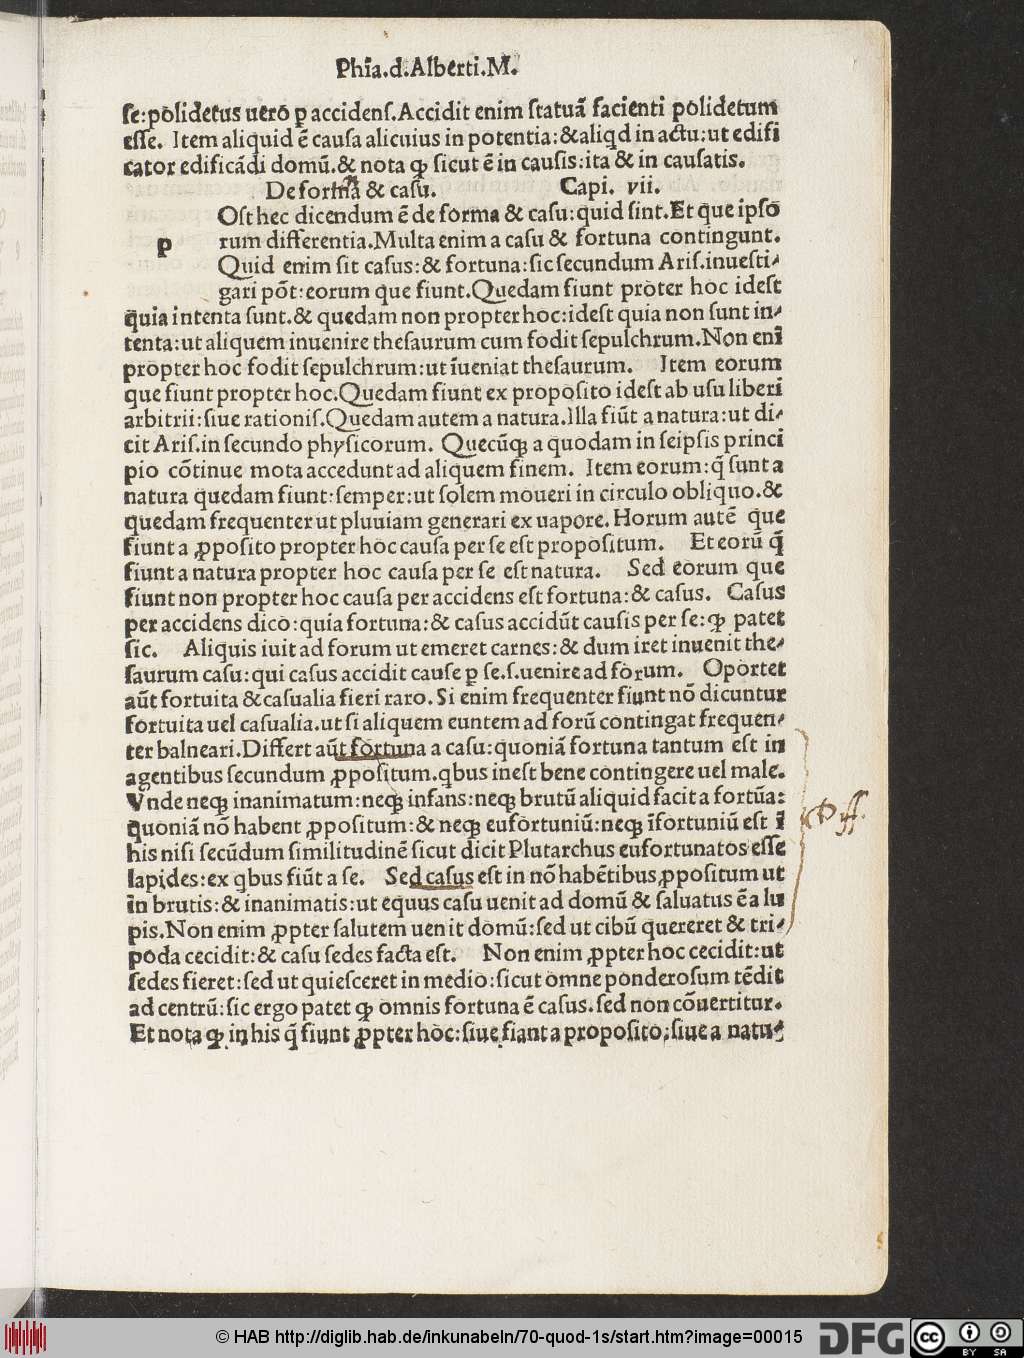 Phia̅.d.Alberti.M.
ſe:polidetus uero p̱ accidenſ.Accidit enim ſtatuā facienti polidetum
eſſe. Item aliquid ē cauſa alicuius in potentia:&aliqd in actu:ut edifi
cator edificādi domū.& nota ꝙ ſicut ē in cauſis:ita & in cauſatis.
De forma & caſu. Capi. vii.
Oſt hec dicendum ē de forma & caſu:quid ſint.Et que ipſo
p rum differentia.Multa enim a caſu & fortuna contingunt.
Quid enim ſit caſus:& fortuna:ſic ſecundum Ariſ.inueſti⸗
gari pōt:eorum que fiunt.Quedam fiunt proter hoc ideſt
quia intenta ſunt.& quedam non propter hoc:ideſt quia non ſunt in⸗
tenta:ut aliquem inuenire theſaurum cum fodit ſepulchrum.Non enī
propter hoc fodit ſepulchrum:ut īueniat theſaurum. Item eorum
que fiunt propter hoc.Quedam fiunt ex propoſito ideſt ab uſu liberi
arbitrii:ſiue rationiſ.Quedam autem a natura.Illa fiūt a natura:ut di⸗
cit Ariſ.in ſecundo phyſicorum. Quecūqꝫ a quodam in ſeipſis princi
pio cōtinue mota accedunt ad aliquem finem. Item eorum:q̄ ſunt a
natura quedam fiunt:ſemper:ut ſolem moueri in circulo obliquo.&
quedam frequenter ut pluuiam generari ex uapore.Horum autē que
fiunt a ꝓpoſito propter hoc cauſa per ſe eſt propoſitum. Et eorū q̄
fiunt a natura propter hoc cauſa per ſe eſt natura. Sed eorum que
fiunt non propter hoc cauſa per accidens eſt fortuna:& caſus. Caſus
per accidens dico:quia fortuna:& caſus accidūt cauſis per ſe:ꝙ patet
ſic. Aliquis iuit ad forum ut emeret carnes:& dum iret inuenit the⸗
ſaurum caſu:qui caſus accidit cauſe ꝑ ſe.ſ.uenire ad forum. Oportet
aūt fortuita & caſualia fieri raro.Si enim frequenter fiunt nō dicuntur
fortuita uel caſualia.ut ſi aliquem euntem ad forū contingat frequen⸗
ter balneari.Differt aūt fortuna a caſu:quoniā fortuna tantum eſt in
agentibus ſecundum ꝓpoſitum.qbus ineſt bene contingere uel male.
Vnde neqꝫ inanimatum:neqꝫ infans:neqꝫ brutū aliquid facit a fortūa:
quoniā nō habent ꝓpoſitum:& neqꝫ eufortuniū:neqꝫ īfortuniū eſt ī
his niſi ſecūdum ſimilitudinē ſicut dicit Plutarchus eufortunatos eſſe
lapides:ex qbus fiūt a ſe. Sed caſus eſt in nō habētibus ꝓpoſitum ut
in brutis:& inanimatis:ut equus caſu uenit ad domū & ſaluatus ē a lu
pis.Non enim ꝓpter ſalutem uenit domū:ſed ut cibū quereret & tri⸗
poda cecidit:& caſu ſedes facta eſt. Non enim ꝓpter hoc cecidit:ut
ſedes fieret:ſed ut quieſceret in medio:ſicut omne ponderoſum tēdit
ad centrū:ſic ergo patet ꝙ omnis fortuna ē caſus.ſed non cōuertitur.
Et nota ꝙ in his q̄ fiunt ꝓpter hoc:ſiue fiant a propoſito:ſiue a natu⸗
Diff.
© HAB http://diglib.hab.de/inkunabeln/70-quod-1s/start.htm?image=00015
DFG
cc
BY SA